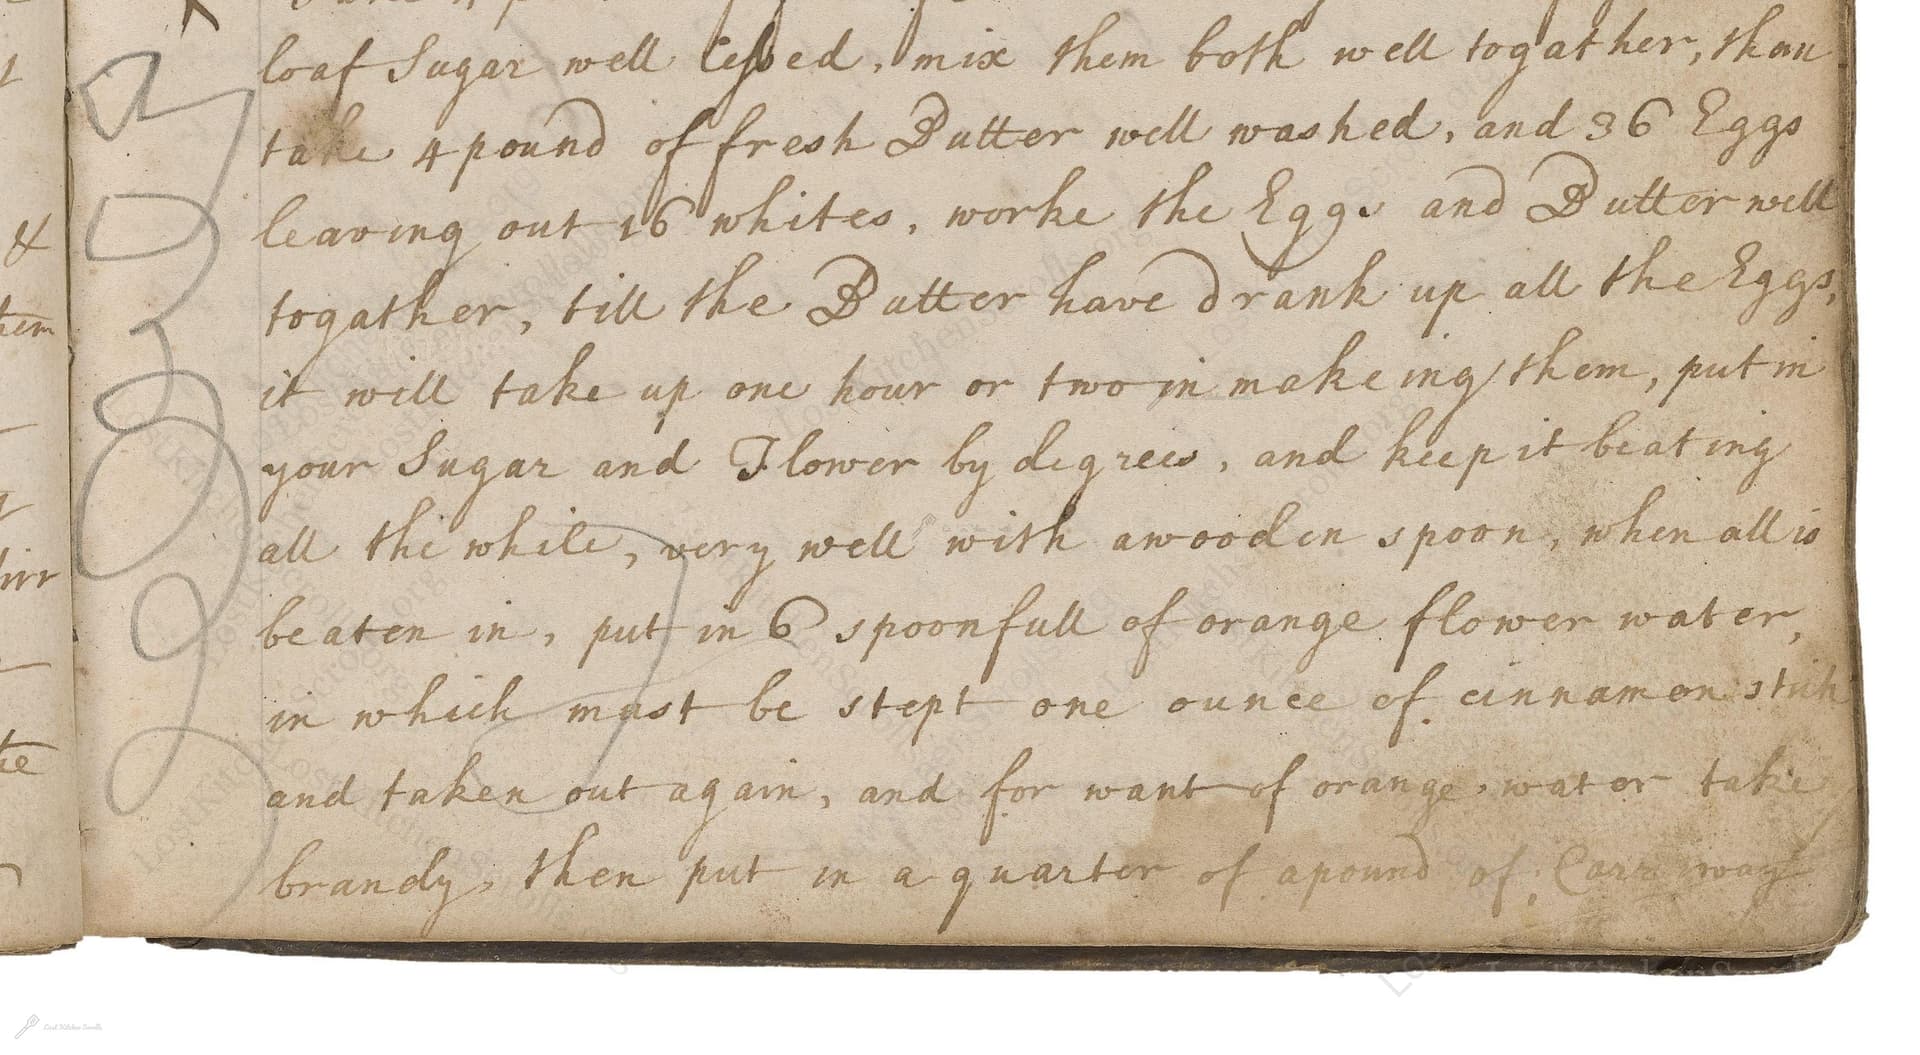 loaf Sugar well , mix them both well togather, than
take 4 pound of fresh Butter well washed, and 36 Eggs
leaving out 16 whites, worke the Eggs and Butter well
togather, till the Butter have drank up all the Eggs,
it will take up one hour or two in makeing them, put in
your Sugar and Flower by degrees, and keep it beating
all the while, very well with a wooden spoon, when all is
beaten in, put in 6 spoonfull of orange flower water,
in which must be stept one ounce of cinnamon stick
and taken out again, and for want of orange water take
brandy, then put in a quarter of a pound of Carraway
&
them